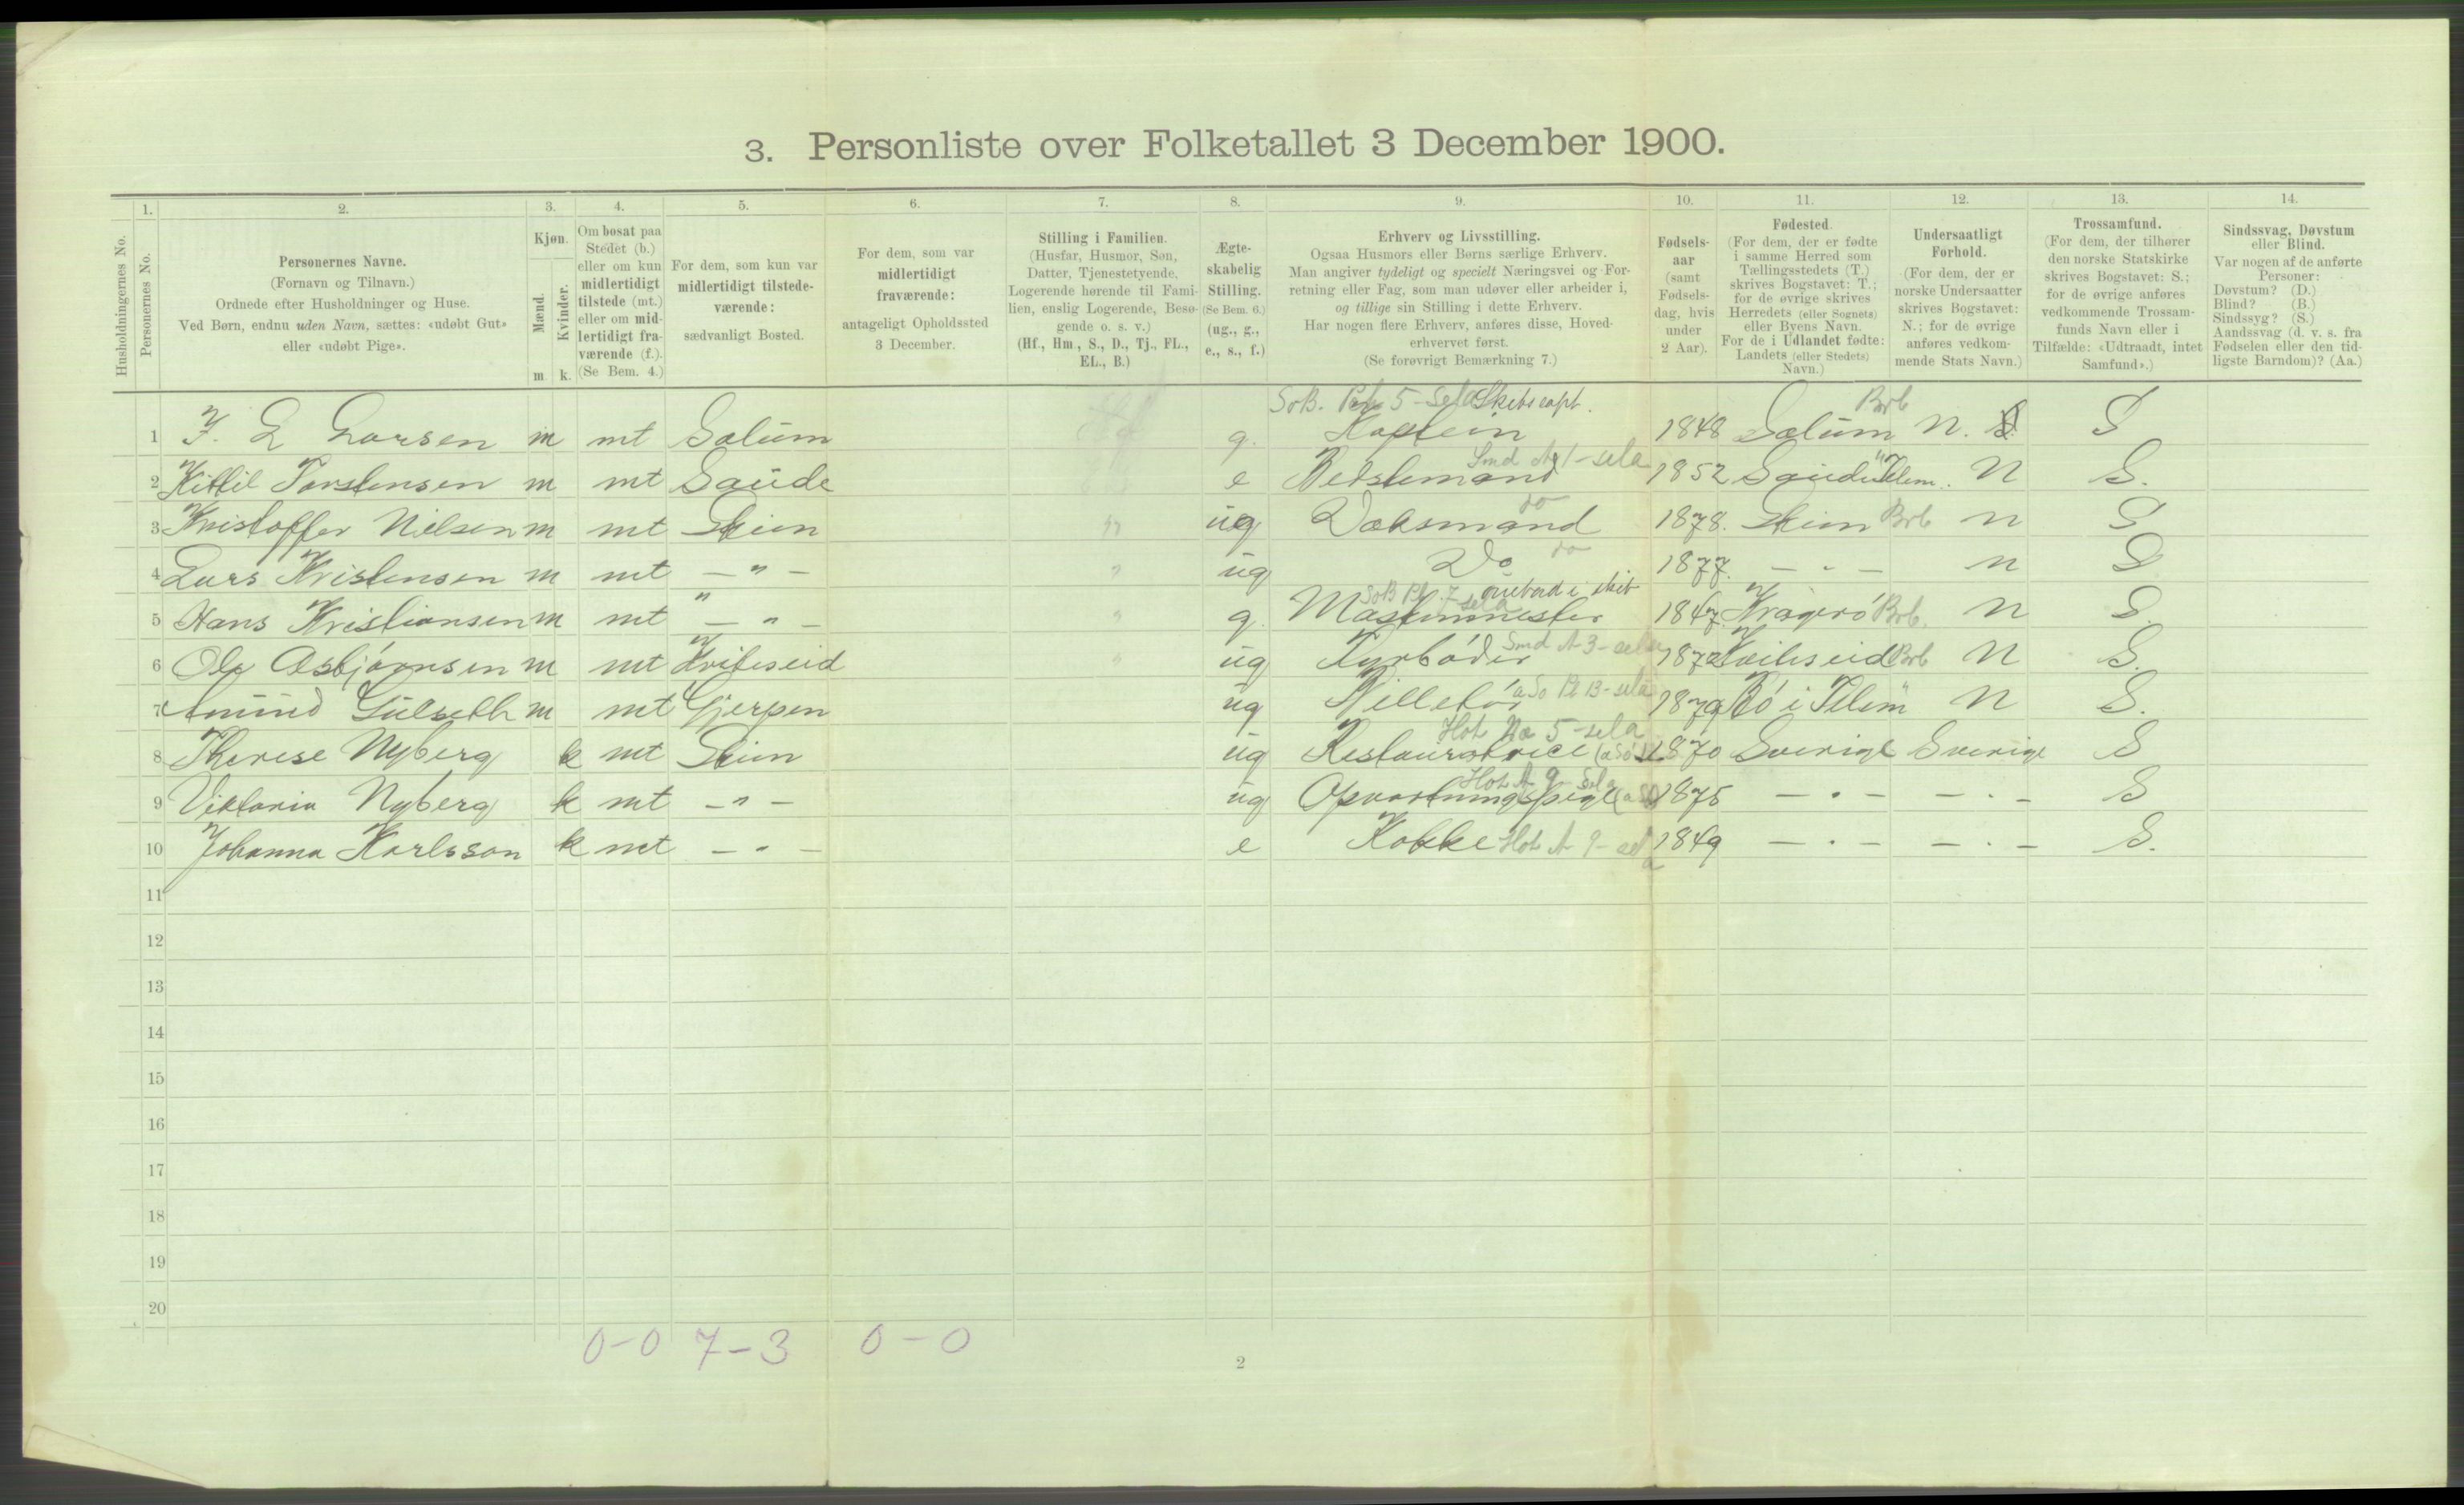 3. Personliste over Folketallet 3 December 1900.
1. 2. 3. 4. 5. 6. 7. 8. 9. 10. 11. 12. 13. 14.
Husholdningernes No.
Personernes No.
Personernes Navne.
(Fornavn og Tilnavn.)
Ordnede efter Husholdninger og Huse.
Ved Børn, endnu uden Navn, sættes: «udøbt Gut»
eller «udøbt Pige».
Kjøn.
Mænd.
Kvinder.
m. k.
Om bosat paa
Stedet (b.)
eller om kun
midlertidigt
tilstede (mt.)
eller om mid-
lertidigt fra-
værende (f.).
(Se Bem. 4.)
For dem, som kun var
midlertidigt tilstede-
værende:
sædvanligt Bosted.
For dem, som var
midlertidigt
fraværende:
antageligt Opholdssted
3 December.
Stilling i Familien.
(Husfar, Husmor, Søn,
Datter, Tjenestetyende,
Logerende hørende til Fami-
lien, enslig Logerende, Besø-
gende o. s. v.)
(Hf., Hm., S., D., Tj., FL.,
EL., B.)
Ægte-
skabelig
Stilling.
(Se Bem. 6.)
(ug., g.,
e., s., f.)
Erhverv og Livsstilling.
Ogsaa Husmors eller Børns særlige Erhverv.
Man angiver tydeligt og specielt Næringsvei og For-
retning eller Fag, som man udøver eller arbeider i,
og tillige sin Stilling i dette Erhverv.
Har nogen flere Erhverv, anføres disse, Hoved-
erhvervet først.
(Se forøvrigt Bemærkning 7.)
Fødsels-
aar
(samt
Fødsels-
dag, hvis
under
2 Aar).
Fødested.
(For dem, der er fødte
i samme Herred som
Tællingsstedets (T.)
skrives Bogstavet: T.;
for de øvrige skrives
Herredets (eller Sognets)
eller Byens Navn.
For de i Udlandet fødte:
Landets (eller Stedets)
Navn.)
Undersaatligt
Forhold.
(For dem, der er
norske Undersaatter
skrives Bogstavet:
N.; for de øvrige
anføres vedkom-
mende Stats Navn.)
Trossamfund.
(For dem, der tilhører
den norske Statskirke
skrives Bogstavet: S.;
for de øvrige anføres
vedkommende Trossam-
funds Navn eller i
Tilfælde: «Udtraadt, intet
Samfund».)
Sindssvag, Døvstum
eller Blind.
Var nogen af de anførte
Personer:
Døvstum? (D.)
Blind? (B.)
Sindssyg? (S.)
Aandssvag (d. v. s. fra
Fødselen eller den tid-
ligste Barndom)? (Aa.)
1 F. L Larsen m mt Solum g. Kaptein 1848 Solum Brb N. S
2 Kittil Torstensen m mt Saude e Bedstemand 1852 Saude Telem. N S.
3 Kristoffer Nilsen m mt Skien ug Dæksmand do 1878. Skien Brb N S
4 Lars Kristensen m mt — " — ug Do do 1877. — " — N S
5 Hans Kristiansen m mt — " — g. Maskinmester 1847. Kragerö Brb. N S.
6 Ole Asbjörnsen m mt Kviteseid ug Fyrböder 1872 Kviteseid Brb N S.
7 Amund Gulseth m mt Gjerpen ug Billetör 1879 Bö i Telem N S.
8 Therese Nyberg k mt Skien ug Restauratrice 1870 Sverige Sverige S
9 Viktoria Nyberg k mt — " — ug Opvartningspige 1875 — " — — " — S
10 Johanna Karlsson k mt — " — e Kokke 1849 — " — — " — S.
11
12
13
14
15
16
17
18
19
20
0-0 7-3 0-0
2